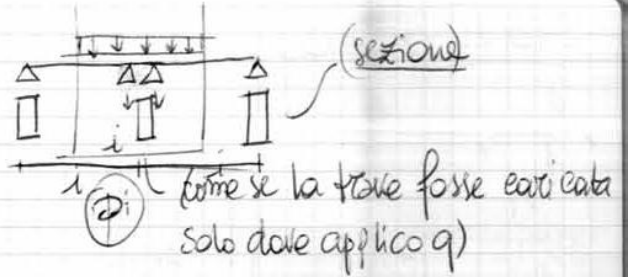 (sezione)
i
i
Di
(come se la trave fosse caricata
solo dove applico q)